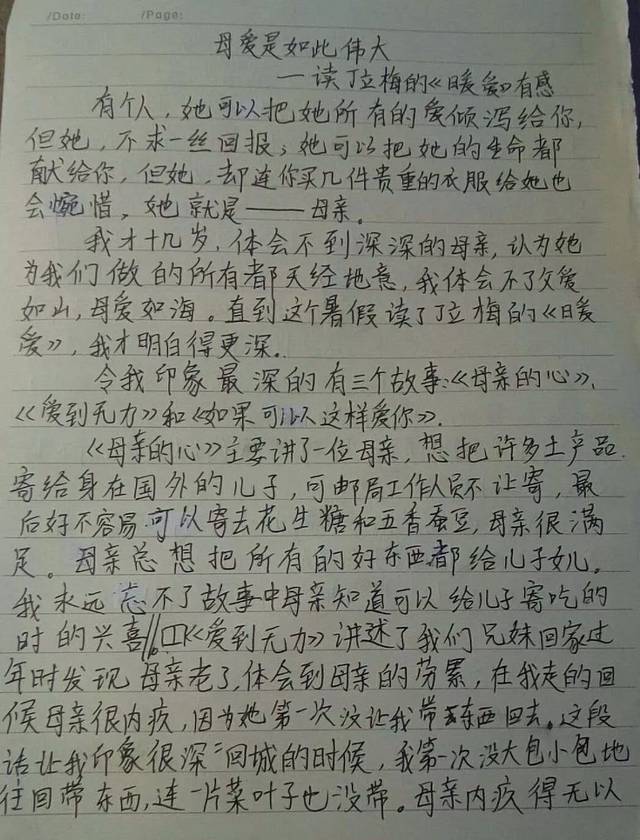 /Date: /Page:
母爱是如此伟大
—读丁立梅的《暖爱》有感
有个人，她可以把她所有的爱倾泻给你，
但她，不求一丝回报；她可以把她的生命都
献给你，但她，却连你买几件贵重的衣服给她也
会惋惜，她就是——母亲。
我才十几岁，体会不到深深的母亲，认为她
为我们做的所有都天经地意，我体会不了父爱
如山，母爱如海。直到这个暑假读了丁立梅的《暖
爱》，我才明白得更深。
令我印象最深的有三个故事：《母亲的心》、
《爱到无力》和《如果可以这样爱你》。
《母亲的心》主要讲了一位母亲，想把许多土产品
寄给身在国外的儿子，可邮局工作人员不让寄，最
后好不容易可以寄去花生糖和五香蚕豆，母亲很满
足。母亲总想把所有的好东西都给儿子女儿。
我永远忘不了故事中母亲知道可以给儿子寄吃的
时的兴喜《爱到无力》讲述了我们兄妹回家过
年时发现母亲老了，体会到母亲的劳累，在我走的回
候母亲很内疚，因为她第一次没让我带东西回去。这段
话让我印象很深“回城的时候，我第一次没大包小包地
往回带东西，连一片菜叶子也没带。母亲内疚得无以